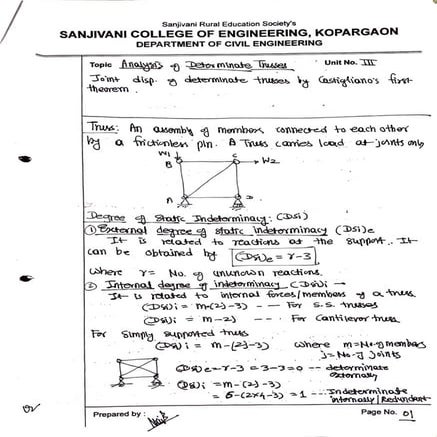 Sanjivani Rural Education Society's
SANJIVANI COLLEGE OF ENGINEERING, KOPARGAON
DEPARTMENT OF CIVIL ENGINEERING
Topic Analysis of Determinate Trusses Unit No. III
Joint disp. of determinate trusses by Castigliano's first
theorem.
Truss: An assembly of members connected to each other
by a frictionless pin. A Truss carries load at joints only
W1
B C W2
A D
Degree of Static Indeterminacy: (Dsi)
① External degree of static indeterminacy (Dsi)e
It is related to reactions at the support. It
can be obtained by (Dsi)e = r-3
where r = No. of unknown reactions.
② Internal degree of indeterminacy (Dsi)i -
It is related to internal forces/members of a truss
(Dsi)i = m-(2j-3) --- For S.S. trusses
(Dsi)i = m-2j --- For Cantilever truss
For simply supported truss
(Dsi)i = m-(2j-3) where m=No.of members
j=No.of joints
(Dsi)e=r-3=3-3=0 -- determinate
externally
(Dsi)i =m-(2j-3)
= 6-(2x4-3) = 1 --- Indeterminate
internally/Redundant
Prepared by : Page No. 01